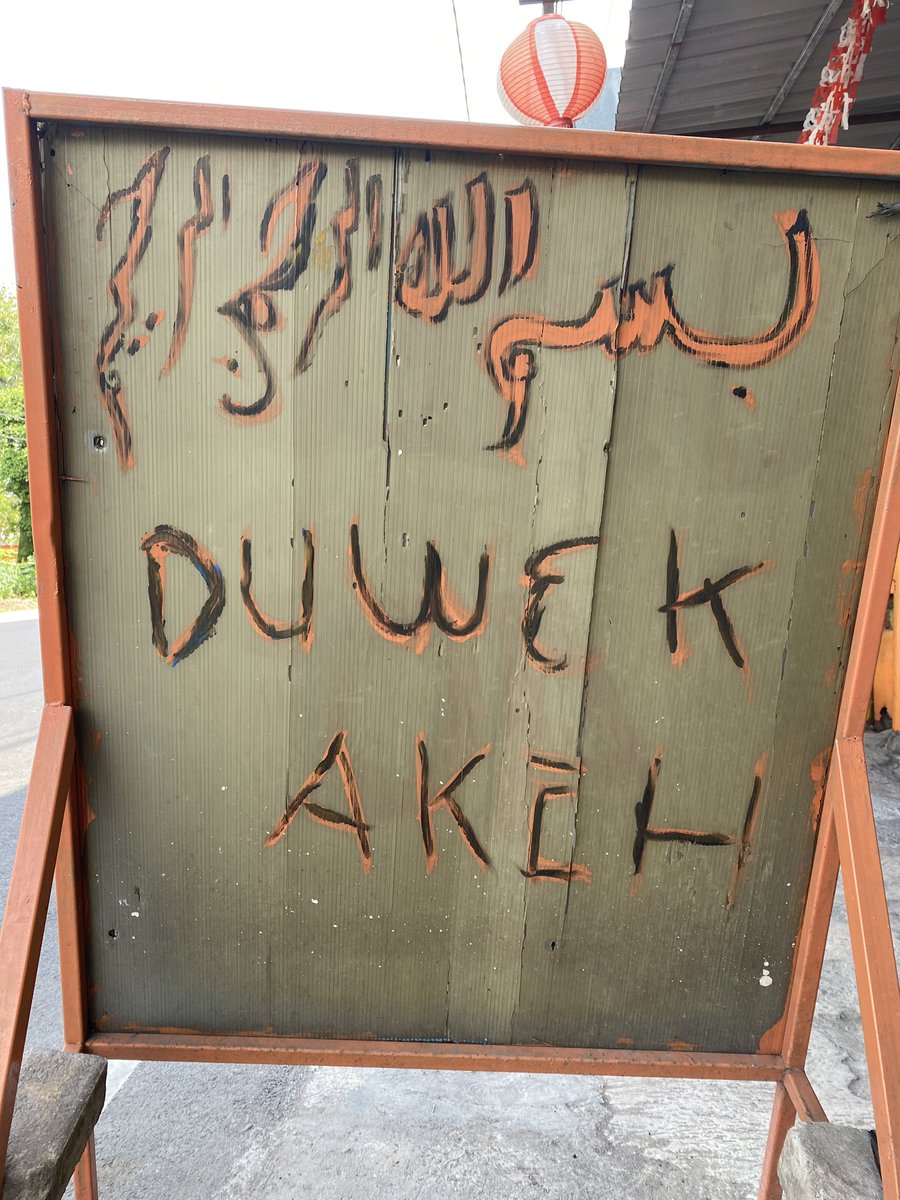 بسم الله الرحمن الرحيم
DUWEK
AKĒH